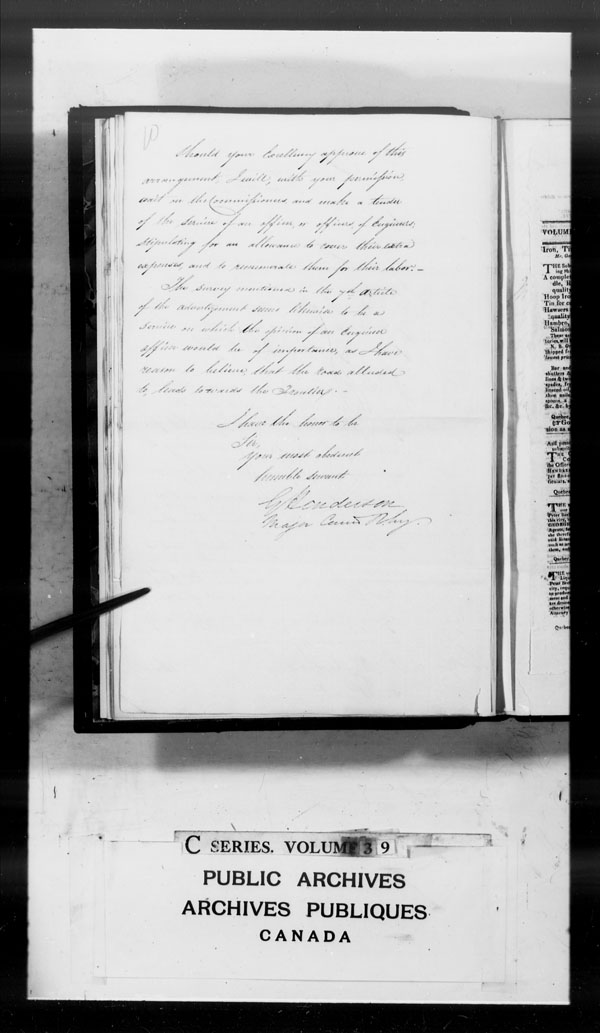 10
Should your Excellency approve of this
arrangement, I will, with your permission,
wait on the Commissioners and make a tender
of the service of an officer or officers of Engineers,
stipulating for an allowance to cover their extra
expenses, and to remunerate them for their labor.—
The survey mentioned in the 7th article
of the advertizement seems likewise to be a
service on which the opinion of an Engineer
officer would be of importance, as I have
reason to believe that the road alluded
to, leads towards the Frontier.—
I have the honor to be
Sir,
your most obedient
humble servant
G Henderson
Major Comm Rl Eng.
VOLUME
Iron, Ti
THE
A comple
Hoop Iro
Tin
Hawsers
quality
Hambro,
Salmon
Quebec,
Quebec
Quebec,
Queb
C SERIES, VOLUME 39
PUBLIC ARCHIVES
ARCHIVES PUBLIQUES
CANADA